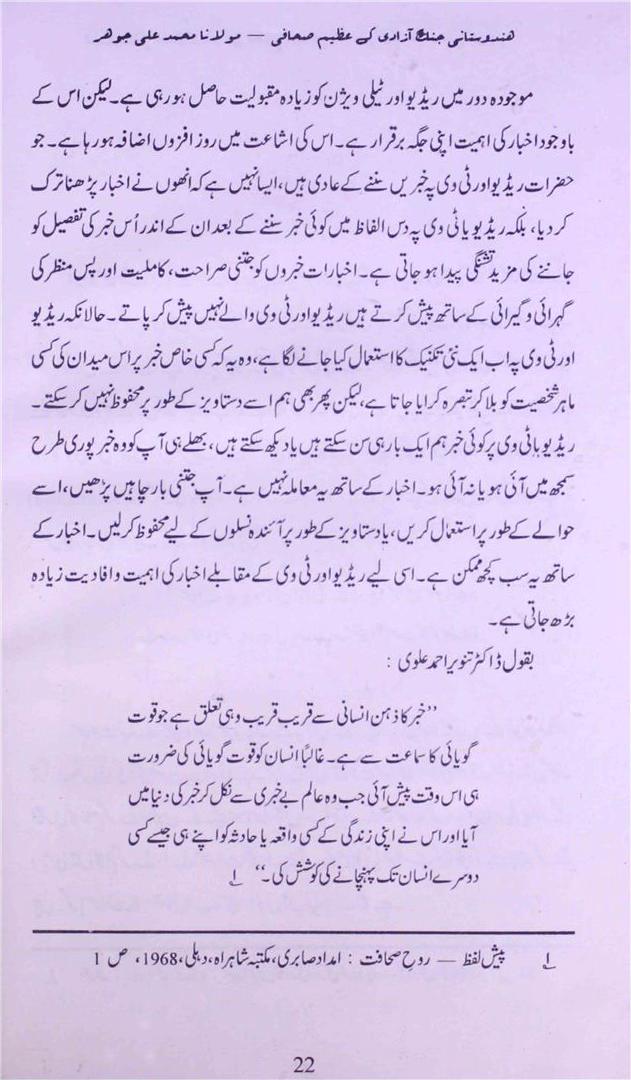 ہندوستانی جنگ آزادی کے عظیم صحافی — مولانا محمد علی جوہر
موجودہ دور میں ریڈیو اور ٹیلی ویژن کو زیادہ مقبولیت حاصل ہو رہی ہے۔ لیکن اس کے
باوجود اخبار کی اہمیت اپنی جگہ برقرار ہے۔ اس کی اشاعت میں روز افزوں اضافہ ہو رہا ہے۔ جو
حضرات ریڈیو اور ٹی وی پہ خبریں سننے کے عادی ہیں، ایسا نہیں ہے کہ انھوں نے اخبار پڑھنا ترک
کر دیا، بلکہ ریڈیو یا ٹی وی پہ دس الفاظ میں کوئی خبر سننے کے بعد ان کے اندر اُس خبر کی تفصیل کو
جاننے کی مزید تشنگی پیدا ہو جاتی ہے۔ اخبارات خبروں کو جتنی صراحت، کاملیت اور پس منظر کی
گہرائی و گیرائی کے ساتھ پیش کرتے ہیں ریڈیو اور ٹی وی والے نہیں پیش کر پاتے۔ حالانکہ ریڈیو
اور ٹی وی پہ اب ایک نئی تکنیک کا استعمال کیا جانے لگا ہے، وہ یہ کہ کسی خاص خبر پر اس میدان کی کسی
ماہر شخصیت کو بلا کر تبصرہ کرایا جاتا ہے، لیکن پھر بھی ہم اسے دستاویز کے طور پر محفوظ نہیں کر سکتے۔
ریڈیو یا ٹی وی پر کوئی خبر ہم ایک بار ہی سن سکتے ہیں یا دیکھ سکتے ہیں، بھلے ہی آپ کو وہ خبر پوری طرح
سمجھ میں آئی ہو یا نہ آئی ہو۔ اخبار کے ساتھ یہ معاملہ نہیں ہے۔ آپ جتنی بار چاہیں پڑھیں، اسے
حوالے کے طور پر استعمال کریں، یا دستاویز کے طور پر آئندہ نسلوں کے لیے محفوظ کر لیں۔ اخبار کے
ساتھ یہ سب کچھ ممکن ہے۔ اسی لیے ریڈیو اور ٹی وی کے مقابلے اخبار کی اہمیت و افادیت زیادہ
بڑھ جاتی ہے۔
بقول ڈاکٹر تنویر احمد علوی :
”خبر کا ذہن انسانی سے قریب قریب وہی تعلق ہے جو قوت
گویائی کا سماعت سے ہے۔ غالباً انسان کو قوت گویائی کی ضرورت
ہی اس وقت پیش آئی جب وہ عالم بے خبری سے نکل کر خبر کی دنیا میں
آیا اور اس نے اپنی زندگی کے کسی واقعہ یا حادثہ کو اپنے ہی جیسے کسی
دوسرے انسان تک پہنچانے کی کوشش کی۔“ ۱؎
۱؎ پیش لفظ — روح صحافت : امداد صابری، مکتبہ شاہراہ، دہلی، 1968، ص 1
22